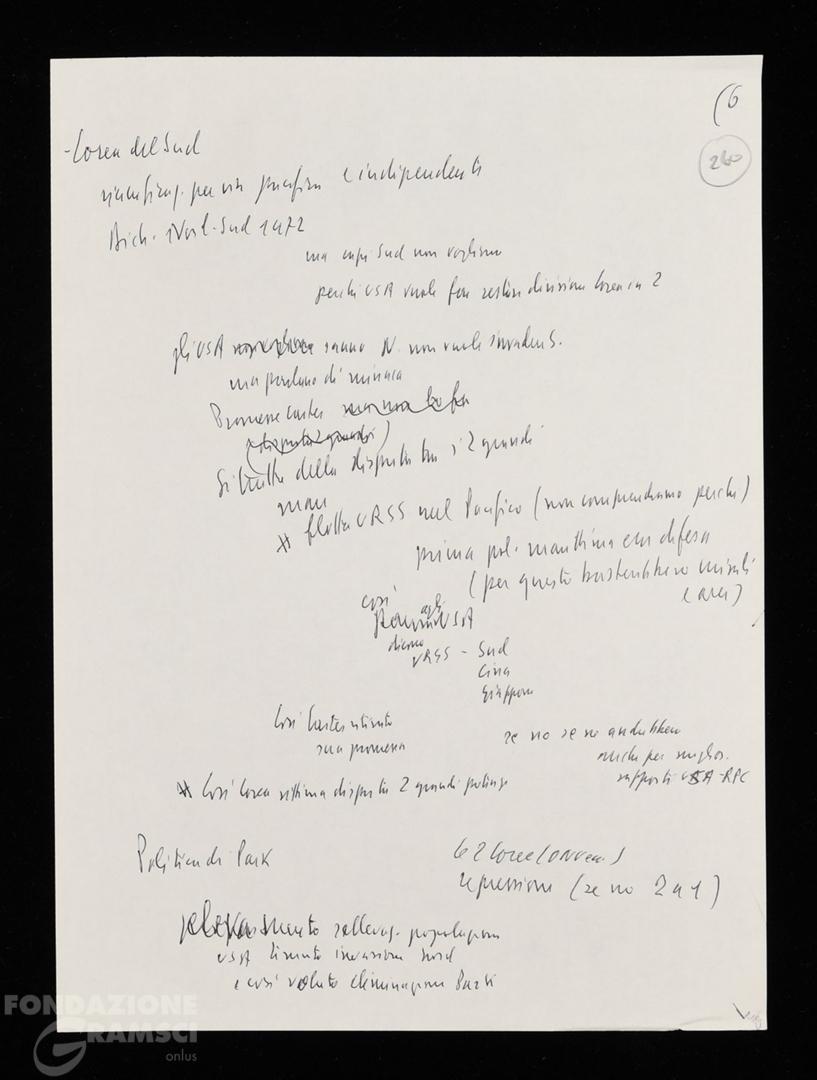 (6
240
- Corea del Sud
riunificaz. per via pacifica e indipendente
Dich. Nord-Sud 1972
ma capi Sud non vogliono
perché USA vuole far restare divisione Corea in 2
gli USA sanno N. non vuole invadere S.
ma parlano di minaccia
Promesse Carter
(disputa 2 grandi)
Si tratta della disputa tra i 2 grandi
* flotta URSS nel Pacifico (non comprendiamo perché)
prima pol. marittima era difesa
(per questo basterebbero missili
e aerei)
così
agli USA
dicono
URSS - Sud
Cina
Giappone
Così Carter ritirato
sua promessa
se no se ne andrebbero
anche per miglior.
rapporti USA-RPC
* Così Corea vittima disputa 2 grandi potenze
Politica di Park
2 Coree
repressione (se no 2 a 1)
sollevaz. popolazione
USA temuto invasione nord
e così voluto eliminazione Park
FONDAZIONE
GRAMSCI
onlus